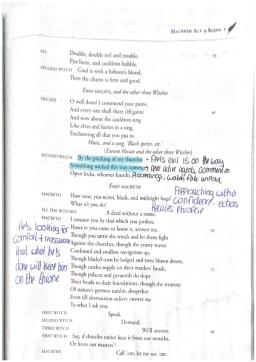 MACBETH ACT 4 SCENE 1
ALL Double, double toil and trouble,
Fire burn, and cauldron bubble.
SECOND WITCH Cool it with a baboon's blood,
Then the charm is firm and good.
Enter HECATE, and the other three Witches
HECATE O well done! I commend your pains,
And every one shall share i'th'gains:
And now about the cauldron sing
Like elves and fairies in a ring,
Enchanting all that you put in.
Music, and a song, 'Black spirits, etc.'
[Exeunt Hecate and the other three Witches]
SECOND WITCH By the pricking of my thumbs - Feels evil is on the way
Something wicked this way comes - The other agents comment on
Open locks, whoever knocks
Enter MACBETH
Approaching with a
MACBETH How now, you secret, black, and midnight hags! confidence. echos
What is't you do?
ALL THE WITCHES A deed without a name.
MACBETH I conjure you by that which you profess,
He's looking for
Howe'er you come to know it, answer me.
comfort + reassurance
Though you untie the winds and let them fight
Against the churches, though the yeasty waves
that what he's
Confound and swallow navigation up,
done will keep him
Though bladed corn be lodged and trees blown down,
on the throne
Though castles topple on their warders' heads,
Though palaces and pyramids do slope
Their heads to their foundations, though the treasure
Of nature's germen tumble altogether
Even till destruction sicken: answer me
To what I ask you.
FIRST WITCH Speak.
SECOND WITCH Demand.
THIRD WITCH We'll answer.
FIRST WITCH Say, if thou'dst rather hear it from our mouths,
Or from our masters?
MACBETH Call 'em, let me see 'em.